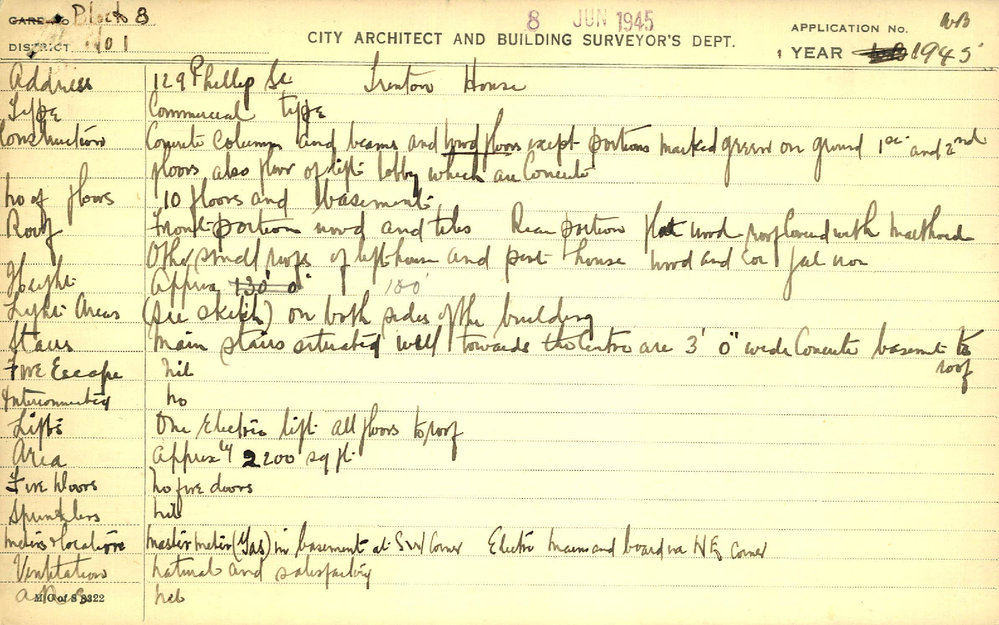 CARD No Block 8
8 JUN 1945
DISTRICT. No 1
CITY ARCHITECT AND BUILDING SURVEYOR'S DEPT.
APPLICATION NO. WB
YEAR 1945
Address 129 Phillip St Trenton House
Type Commercial type
Construction Concrete columns and beams and wood floors except portions marked green on ground 1st and 2nd
floors also floor of lift lobby which are Concrete
No of floors 10 floors and basement
Roof Front portion wood and tiles Rear portion flat wood roof covered with malthoid
Other small roofs of lift house and pent house wood and cor gal iron
Height Approx 130' 0" 100'
Light Areas (see sketch) on both sides of the building
Stairs Main stairs situated well towards the Centre are 3' 0" wide Concrete basement to
roof
Fire Escape nil
Interconnected no
Lifts One Electric lift all floors to roof
Area Approxly 2200 sq ft
Fire Doors no fire doors
Sprinklers nil
meters & locations master meter (Gas) in basement at SW Corner Electric main and board via NE Corner
Ventilation natural and satisfactory
M/C of S 8322
nil